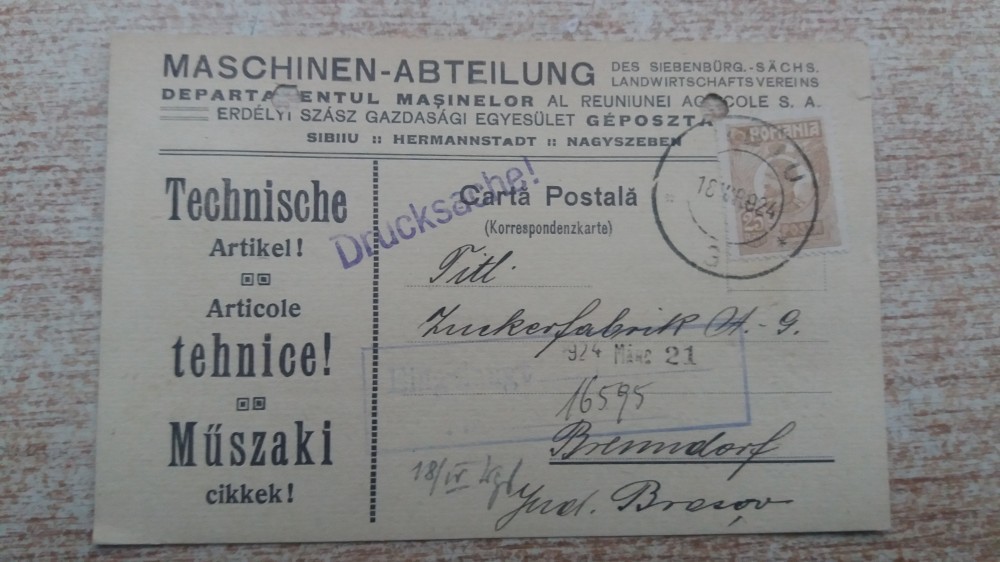 MASCHINEN-ABTEILUNG DES SIEBENBÜRG.-SÄCHS. LANDWIRTSCHAFTSVEREINS
DEPARTAMENTUL MAȘINELOR AL REUNIUNEI AGRICOLE S. A.
ERDÉLYI SZÁSZ GAZDASÁGI EGYESÜLET GÉPOSZTÁ
SIBIIU :: HERMANNSTADT :: NAGYSZEBEN
Technische
Artikel!
Articole
tehnice!
Műszaki
cikkek!
Drucksache!
Cartă Postală
(Korrespondenzkarte)
ROMANIA
25
Titl.
Zuckerfabrik A.-G.
924 MÄRC 21
16595
Brenndorf
18/IV
Jud. Brașov